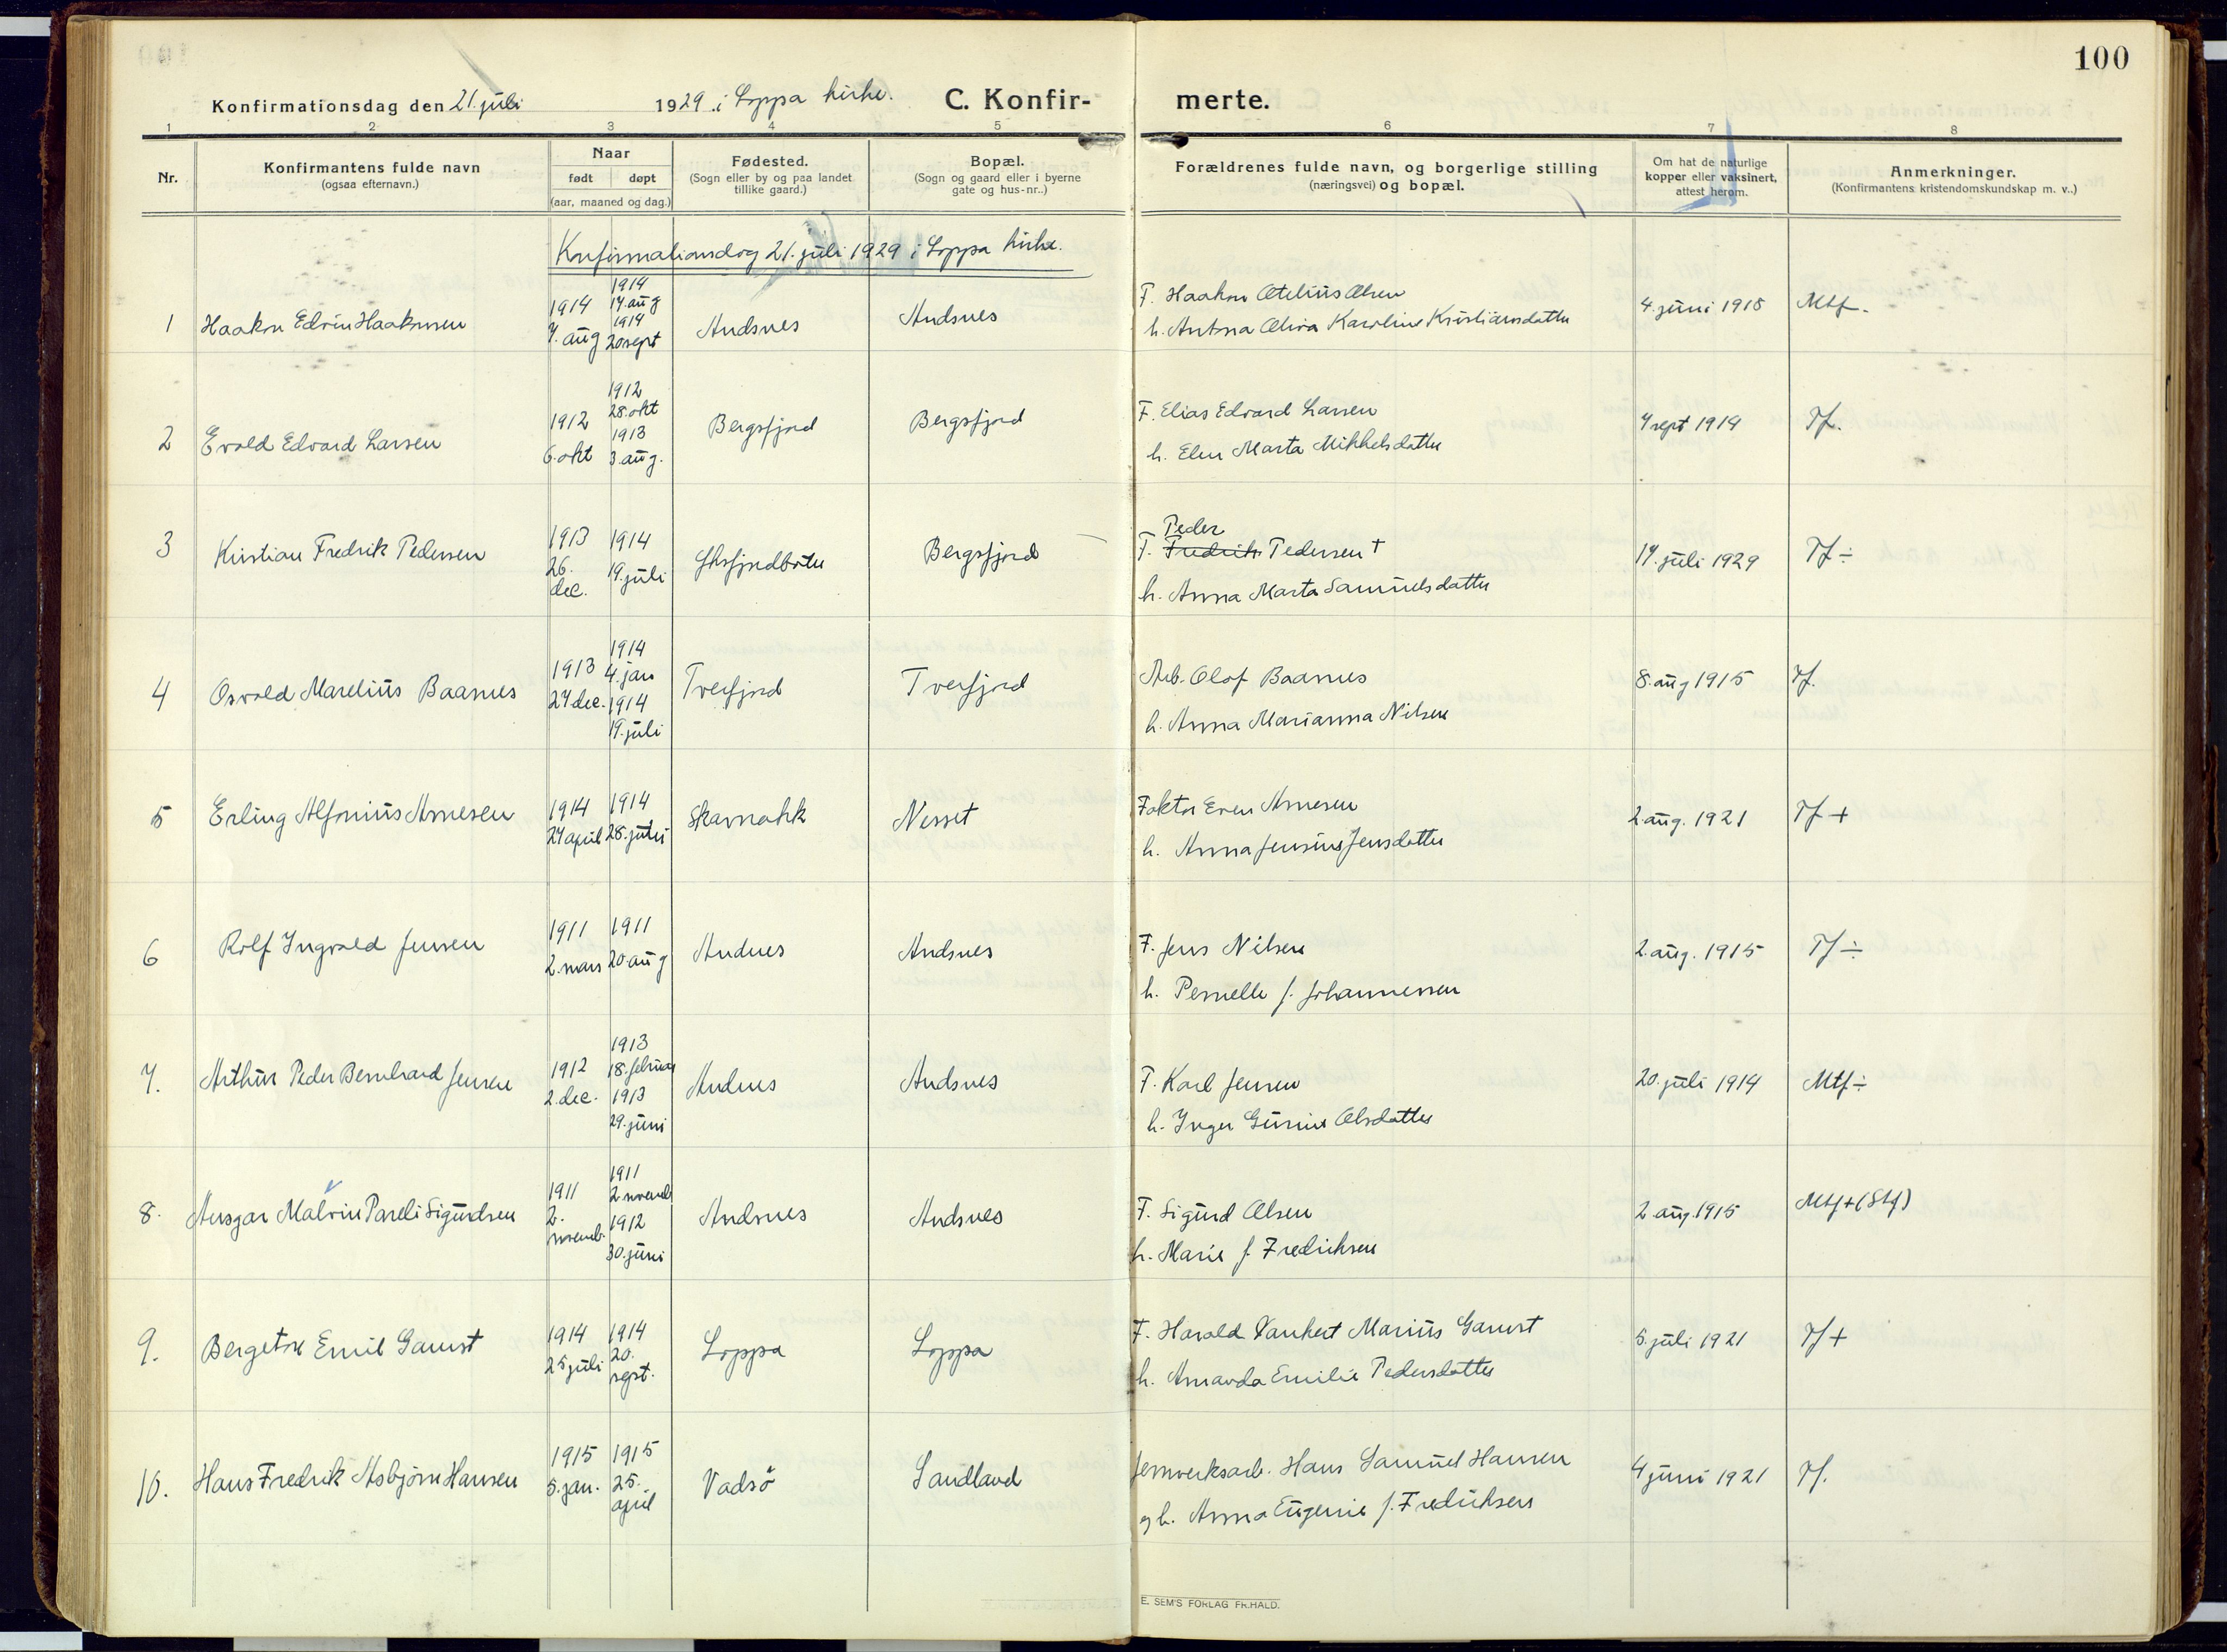 100
Konfirmationsdag den 21. juli 1929 i Loppa kirke. C. Konfir- merte.
1 2 3 4 5 6 7 8
Nr.
Konfirmantens fulde navn
(ogsaa efternavn.)
Naar
født døpt
(aar, maaned og dag.)
Fødested.
(Sogn eller by og paa landet
tillike gaard.)
Bopæl.
(Sogn og gaard eller i byerne
gate og hus-nr..)
Forældrenes fulde navn, og borgerlige stilling
(næringsvei) og bopæl.
Om hat de naturlige
kopper eller vaksinert,
attest herom.
Anmerkninger.
(Konfirmantens kristendomskundskap m. v..)
Konfirmationsdag 21. juli 1929 i Loppa kirke.
1 Haakon Edvin Haakonsen
1914
7. aug
1914
14. aug
1914
20 sept
Andsnes
Andsnes
F. Haakon Otelius Olsen
h. Antona Oliva Karoline Kristiansdatter
4. juni 1918
Mtf.
2 Evald Edvard Larsen
1912
6. okt
1912
28. okt
1913
3. aug.
Bergsfjord
Bergsfjord
F. Elias Edvard Larsen
h. Elen Marta Mikkelsdatter
7 sept 1919
Tf.
3 Kristian Fredrik Pedersen
1913
26.
dec.
1914
19. juli
Øksfjordbotn
Bergsfjord
Peder
F. Fredrik Pedersen †
h. Anna Marta Samuelsdatter
17. juli 1929
Tf ÷
4 Osvald Marelius Baarnes
1913
27 dec.
1914
4. jan
1914
19. juli
Tverfjord
Tverfjord
Arb. Olof Baarnes
h. Anna Marianna Nilsen
8. aug 1915
Tf.
5 Erling Alfonius Arnesen
1914
27 april
1914
28. juli
Skavnakk
Nesset
Faktor Even Arnesen
h. Anna Jensine Jensdatter
2 aug. 1921
Tf +
6 Rolf Ingvald Jensen
1911
2. mars
1911
20. aug
Andnes
Andsnes
F. Jens Nilsen
h. Pernelle f. Johannessen
2. aug. 1915
Tf ÷
7. Arthur Peder Bernhard Jensen
1912
2. dec.
1913
18. februar
1913
29. juni
Andnes
Andsnes
F. Karl Jensen
h. Inger Gurine Olsdatter
20. juli 1914
Mtf ÷
8. Ansgar Malvin Pareli Sigurdsen
1911
2.
novemb.
1911
2. novemb
1912
30. juni
Andsnes
Andsnes
F. Sigurd Olsen
h. Marie f. Fredriksen
2. aug. 1915
Mtf + (Stf)
9. Bergeton Emil Gamst
1914
25 juli
1914
20.
sept.
Loppa
Loppa
F. Harald Vankert Marius Gamst
h. Amanda Emilie Pedersdatter
5. juli 1921
Tf +
10. Hans Fredrik Asbjørn Hansen
1915
5. jan.
1915
25.
april
Vadsö
Sandland
Jernverksarb. Hans Samuel Hansen
og h. Anna Eugenie f. Fredriksen
4 juni 1921
Tf.
E. SEM'S FORLAG FR.HALD.